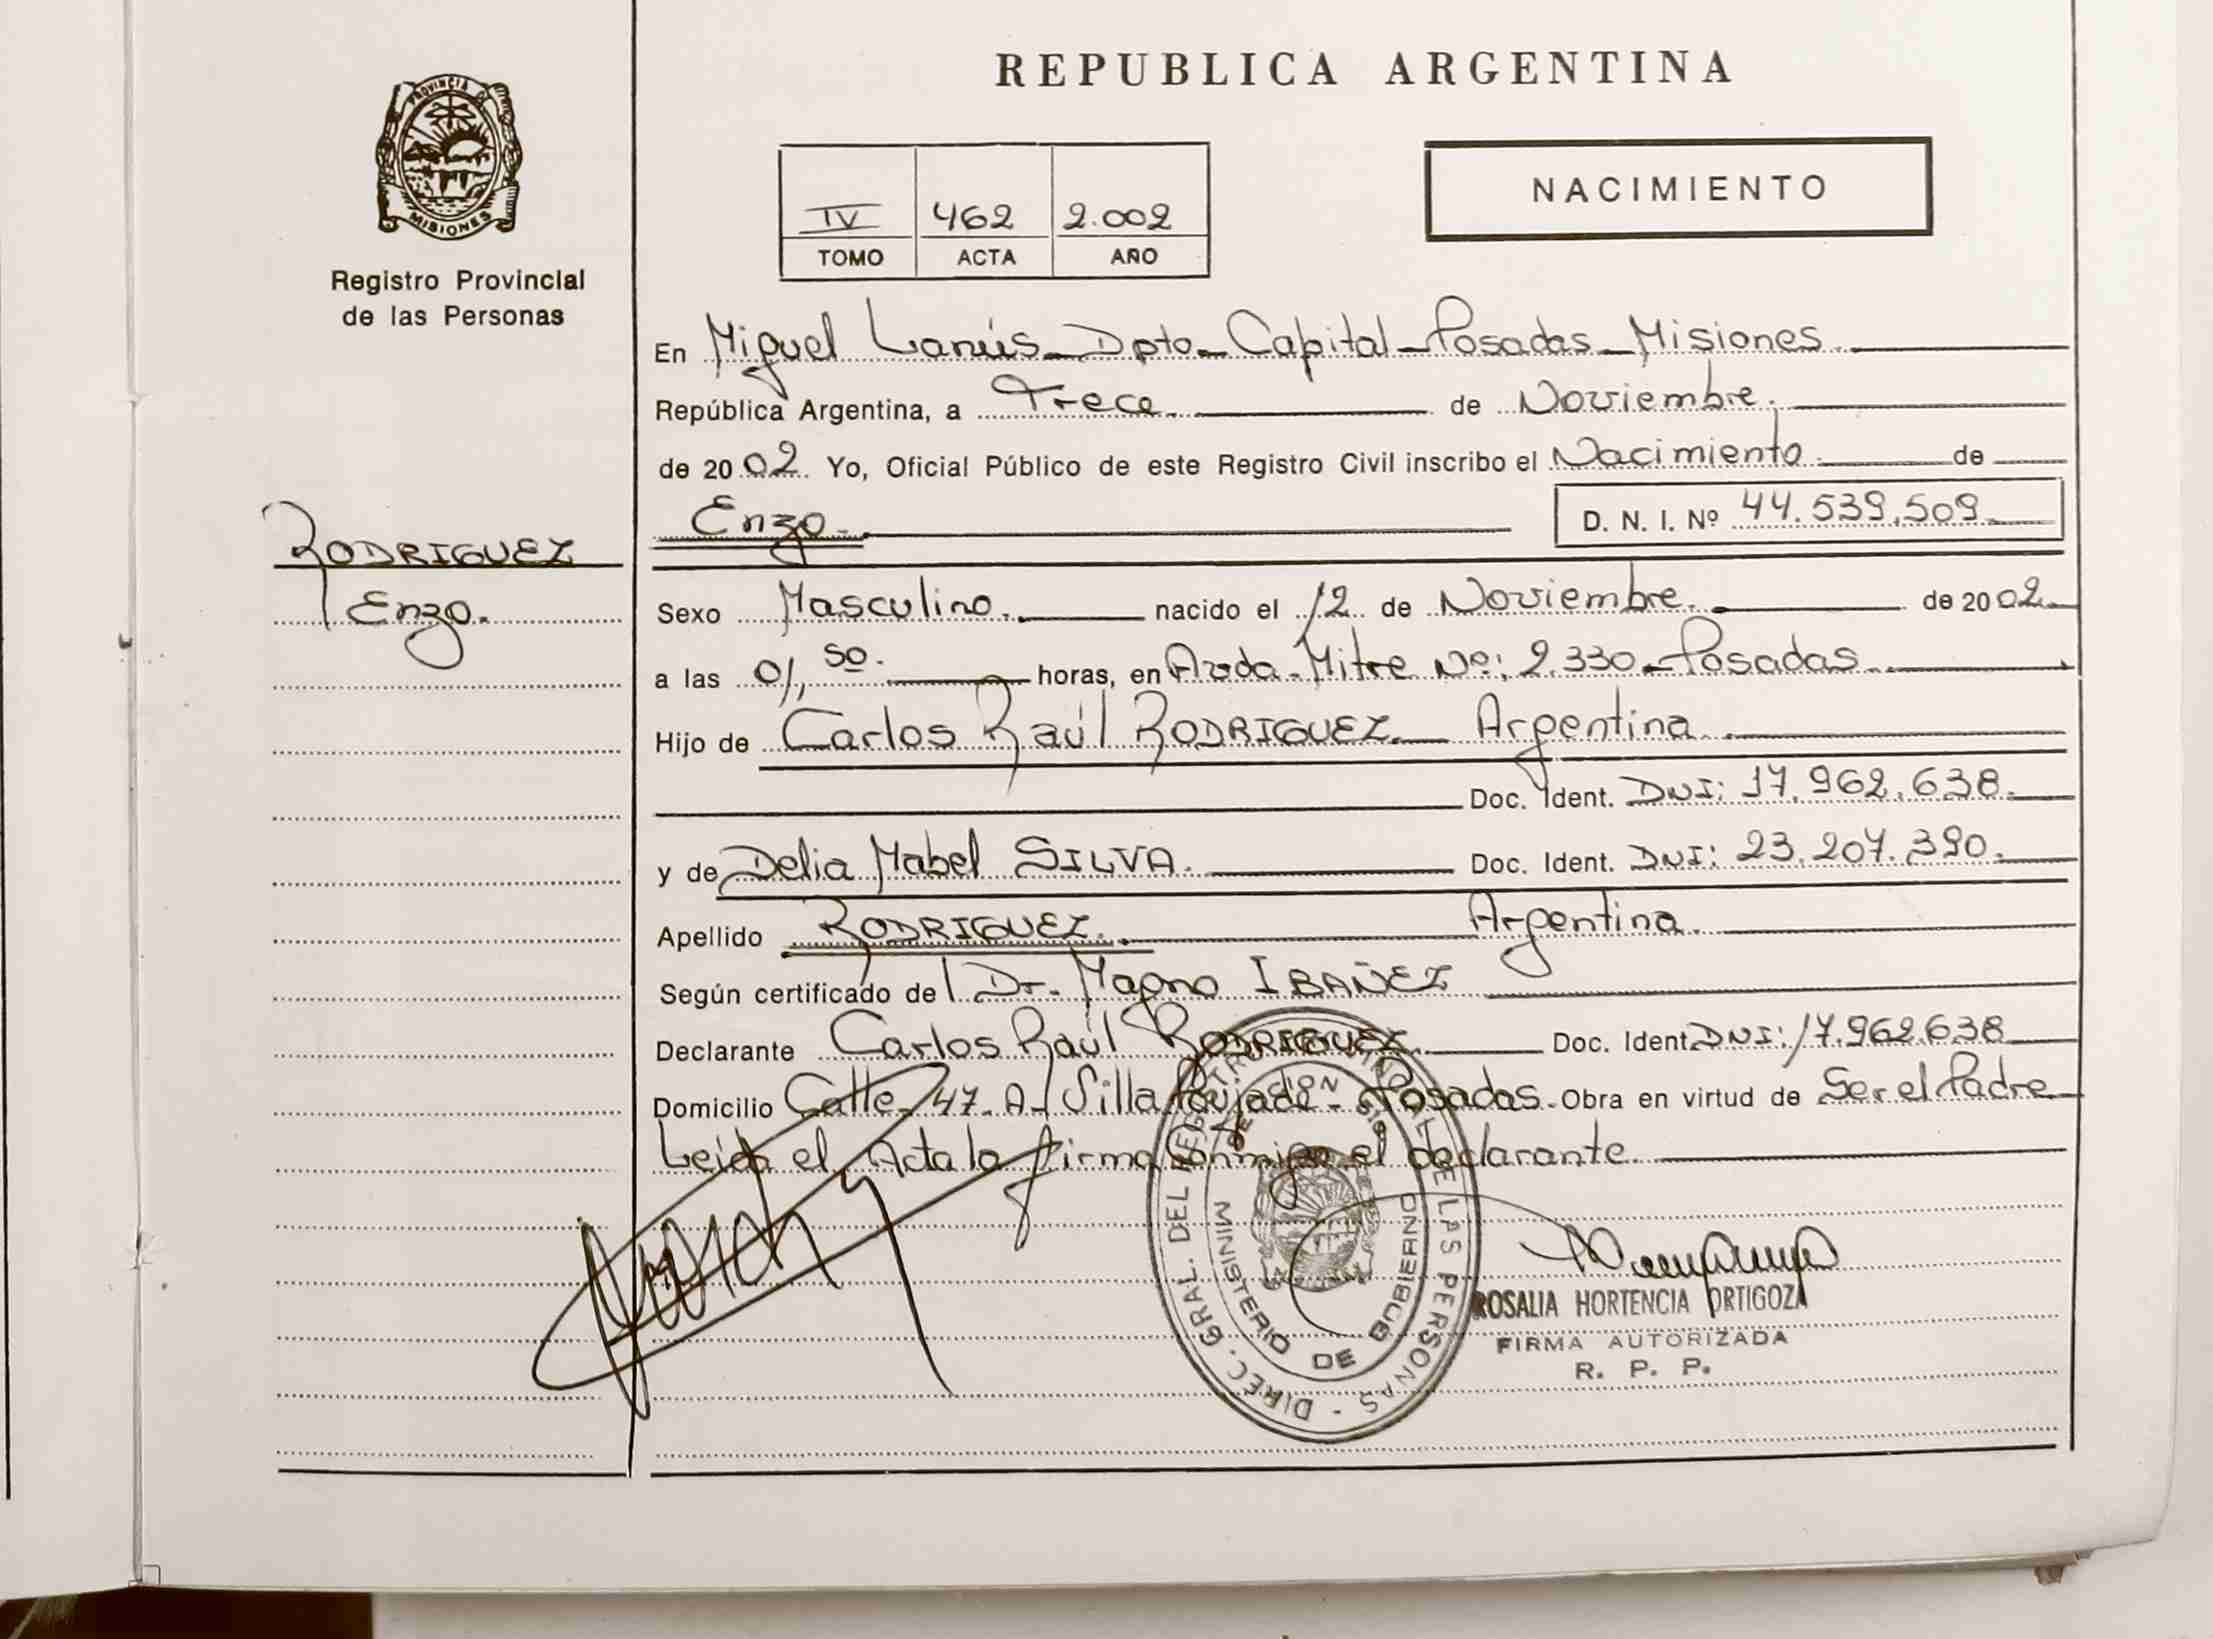 REPUBLICA ARGENTINA
PROVINCIA DE
MISIONES
Registro Provincial
de las Personas
IV 462 2.002
TOMO ACTA AÑO
NACIMIENTO
En Miguel Lanús - Dpto - Capital - Posadas - Misiones.
República Argentina, a Trece. de Noviembre.
de 2002. Yo, Oficial Público de este Registro Civil inscribo el Nacimiento de
Enzo. D. N. I. Nº 44.539.509
RODRIGUEZ
Enzo.
Sexo Masculino. nacido el 12 de Noviembre. de 2002.
a las 01,50. horas, en Avda. Mitre Nº: 2.330 - Posadas.
Hijo de Carlos Raúl RODRIGUEZ. Argentina.
Doc. Ident. DNI: 17.962.638.
y de Delia Mabel SILVA. Doc. Ident. DNI: 23.207.390.
Apellido RODRIGUEZ. Argentina.
Según certificado de Dr. Magno IBAÑEZ
Declarante Carlos Raúl RODRIGUEZ. Doc. Ident. DNI: 17.962.638
Domicilio Calle 47 A - Villa Poujade - Posadas. Obra en virtud de Ser el Padre
Leída el Acta la firma conmigo el declarante.
DIREC. GRAL. DEL REGISTRO PROVINCIAL DE LAS PERSONAS -
MINISTERIO DE GOBIERNO
ROSALIA HORTENCIA ORTIGOZA
FIRMA AUTORIZADA
R. P. P.